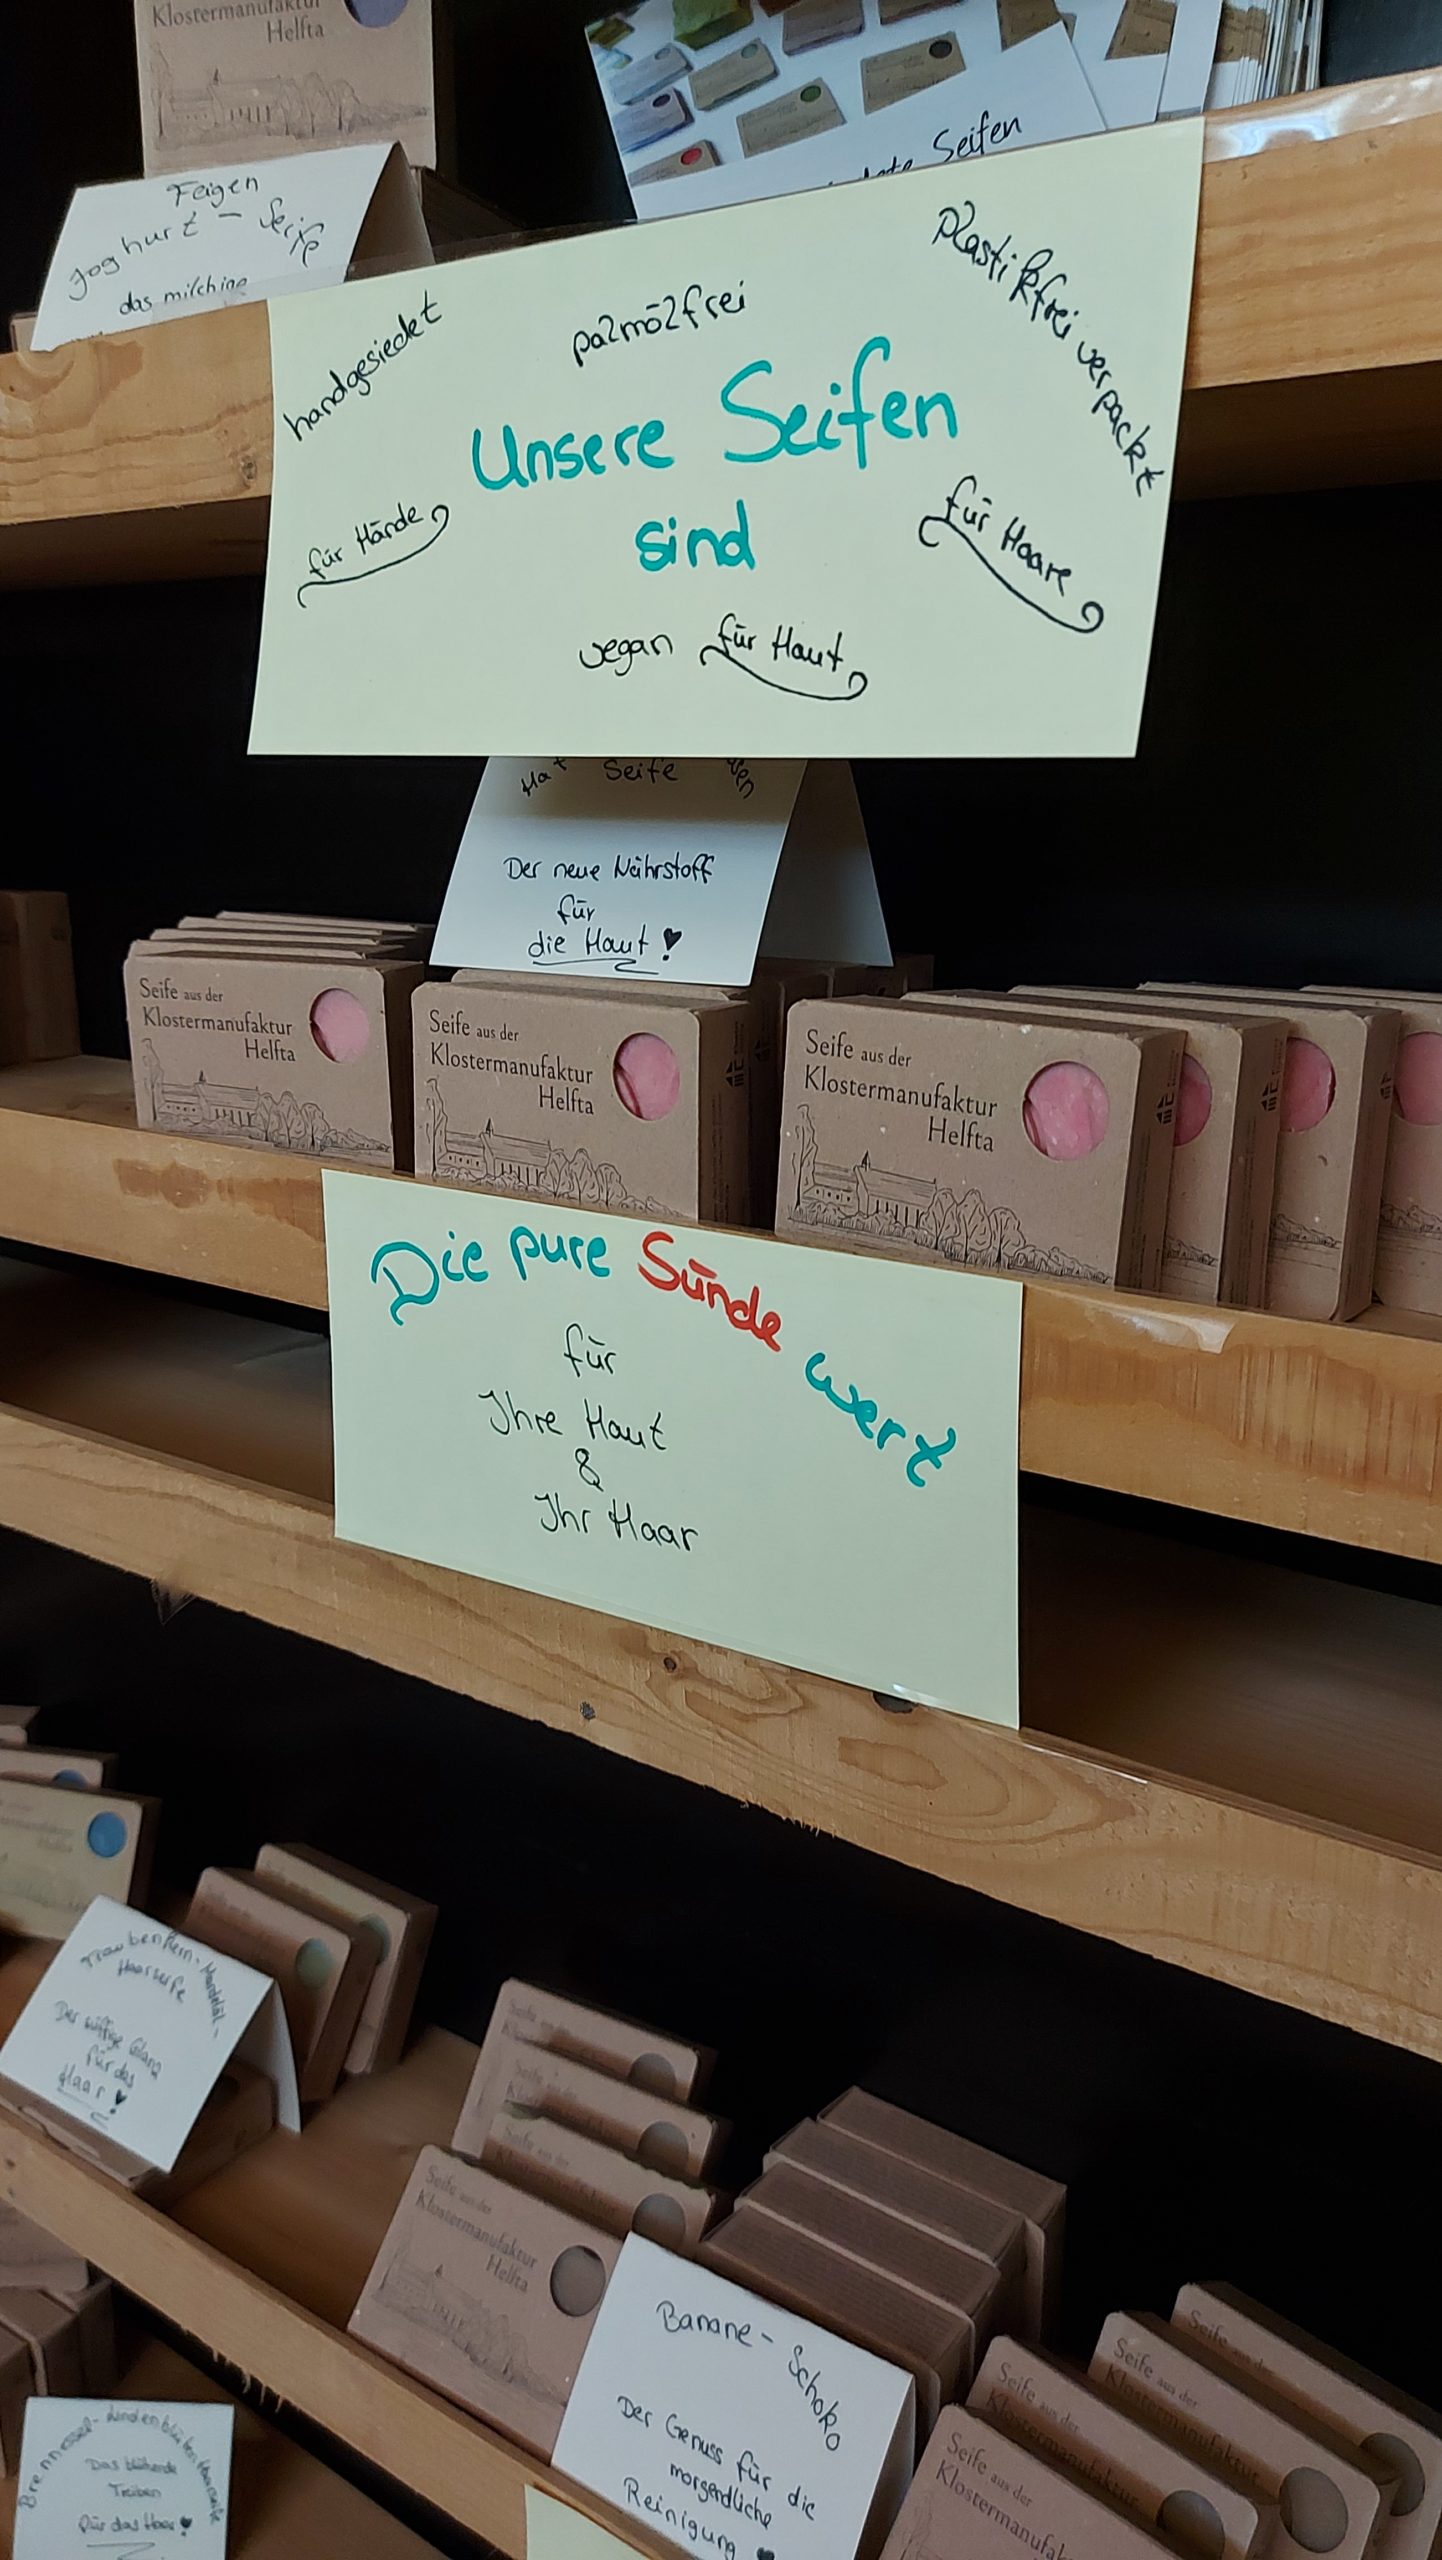 Klostermanufaktur
Helfta
Feigen
Joghurt - Seife
das milchige
Seifen
handgesiedet
palmölfrei
Plastikfrei verpackt
Unsere Seifen
sind
für Hände
für Haare
vegan für Haut
Seife
Der neue Nährstoff
für
die Haut!
Seife aus der
Klostermanufaktur
Helfta
Seife aus der
Klostermanufaktur
Helfta
Seife aus der
Klostermanufaktur
Helfta
Die pure Sünde wert
für
Ihre Haut
&
Ihr Haar
Traubenkern-Mandelöl-
Haarseife
Der
Glanz
für das
Haar!
Seife aus der
Seife aus der
Seife aus der
Seife aus der
Klostermanufaktur
Helfta
Banane-Schoko
Der Genuss für die
morgendliche
Reinigung
Seife aus der
Seife aus der
Klostermanufaktur
Seife aus der
Klostermanufaktur
Seife aus der
Klostermanufak
Brennessel-Lindenblütenhaarseife
Das blühende
Treiben
für das Haar!